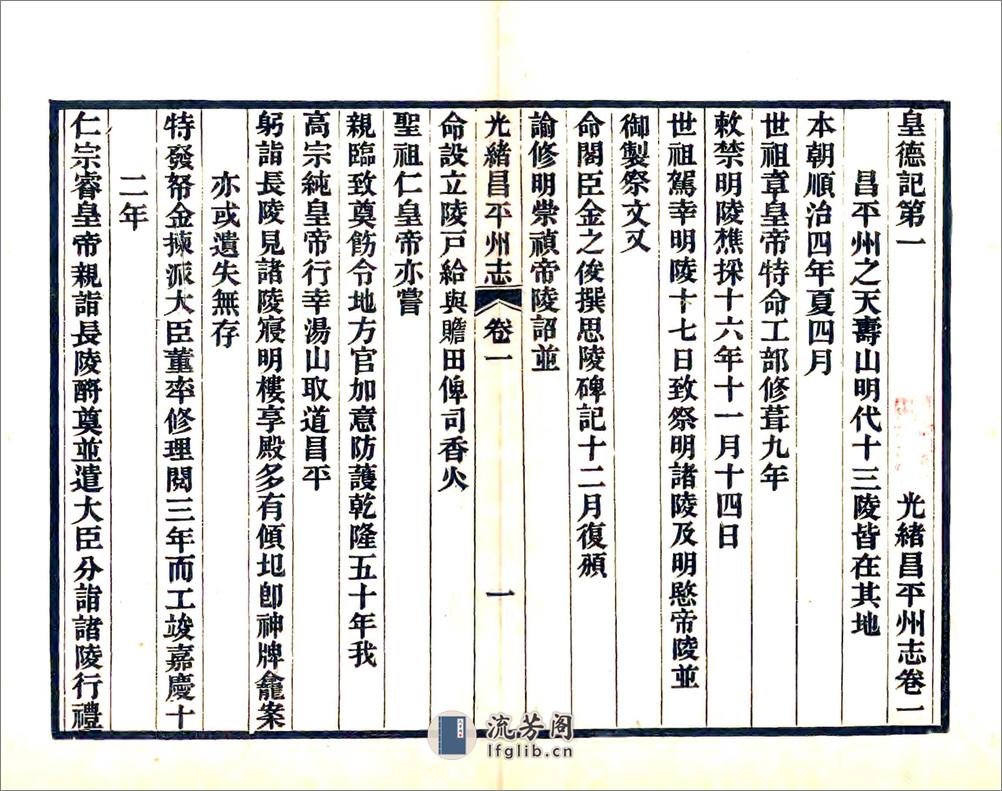 皇德記第一　光緒昌平州志卷一
昌平州之天壽山明代十三陵皆在其地
本朝順治四年夏四月
世祖章皇帝特命工部修葺九年
敕禁明陵樵採十六年十一月十四日
世祖駕幸明陵十七日致祭明諸陵及明愍帝陵並
御製祭文又
命閣臣金之俊撰思陵碑記十二月復頒
諭修明崇禎帝陵詔並
光緒昌平州志　卷一　一
命設立陵戶給與贍田俾司香火
聖祖仁皇帝亦嘗
親臨致奠飭令地方官加意防護乾隆五十年我
高宗純皇帝行幸湯山取道昌平
躬詣長陵見諸陵寢明樓享殿多有傾圮卽神牌龕案
亦或遺失無存
特發帑金揀派大臣董率修理閱三年而工竣嘉慶十
二年
仁宗睿皇帝親詣長陵酹奠並遣大臣分詣諸陵行禮
流芳阁
lfglib.cn